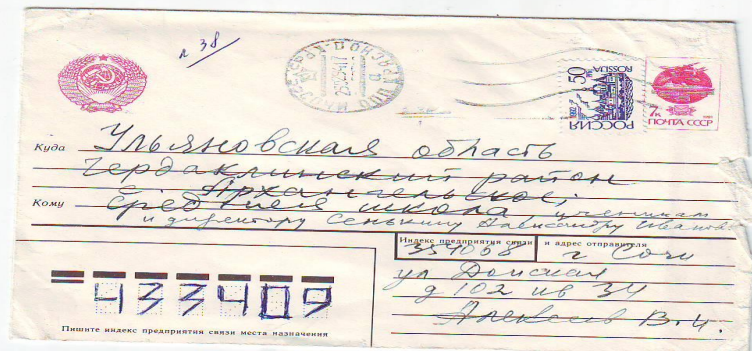 л 38
50
РОССИЯ
ROSSIJA
1992
7к
ПОЧТА СССР
Куда Ульяновская область
Чердаклинский район
с. Архангельское,
Кому средняя школа ученикам
и директору Сенькину Александру Иванов
Индекс предприятия связи и адрес отправителя
354068 г Сочи
ул Донская
д 102 кв 34
Алексеев В.И.
433409
Пишите индекс предприятия связи места назначения